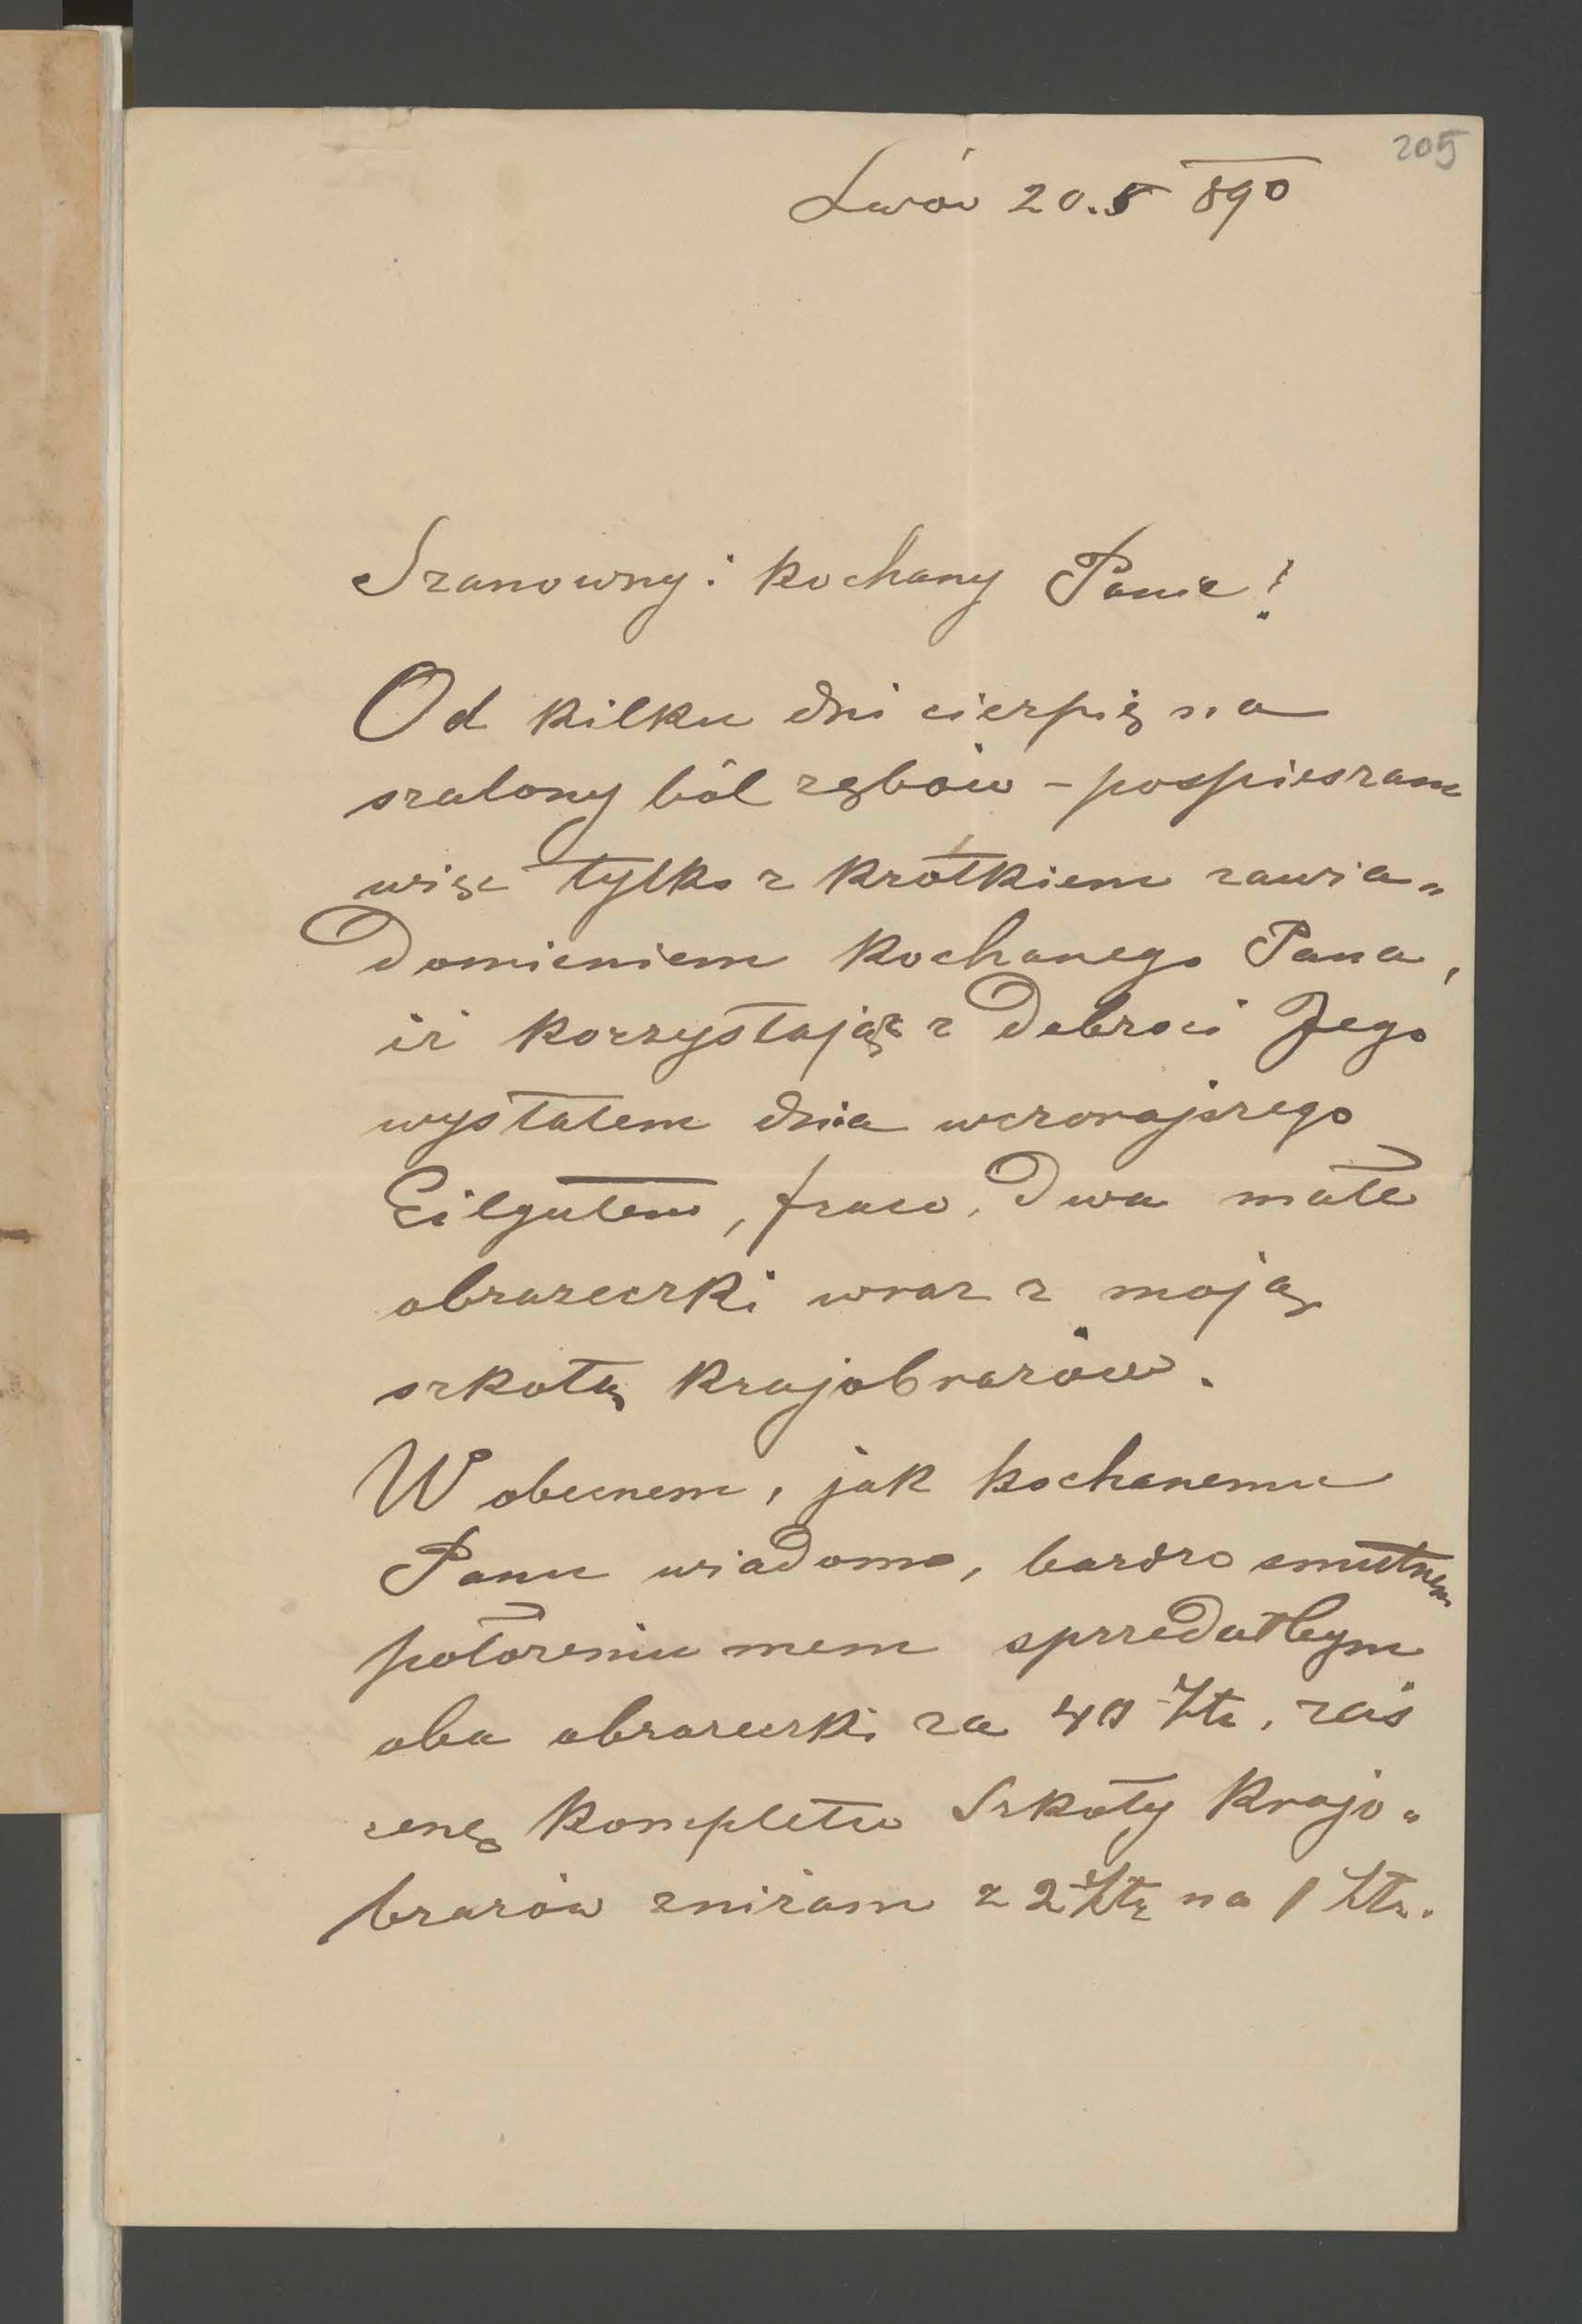 205
Lwów 20.5 890
Szanowny i kochany Panie!
Od kilku dni cierpię na
szalony ból zębów - pospieszam
więc tylko z krótkiem zawia„
domieniem kochanego Pana,
iż korzystając z dobroci Jego
wysłałem dnia wczorajszego
Eilgutem, franco, dwa małe
obrazeczki wraz z moją
szkołą krajobrazów.
W obecnem, jak kochanemu
Panu wiadomo, bardzo smutnem
położeniu mem sprzedałbym
oba obrazeczki za 40 złr, zaś
cenę kompletu Szkoły krajo„
brazów zniżam z 2 złr na 1 złr.